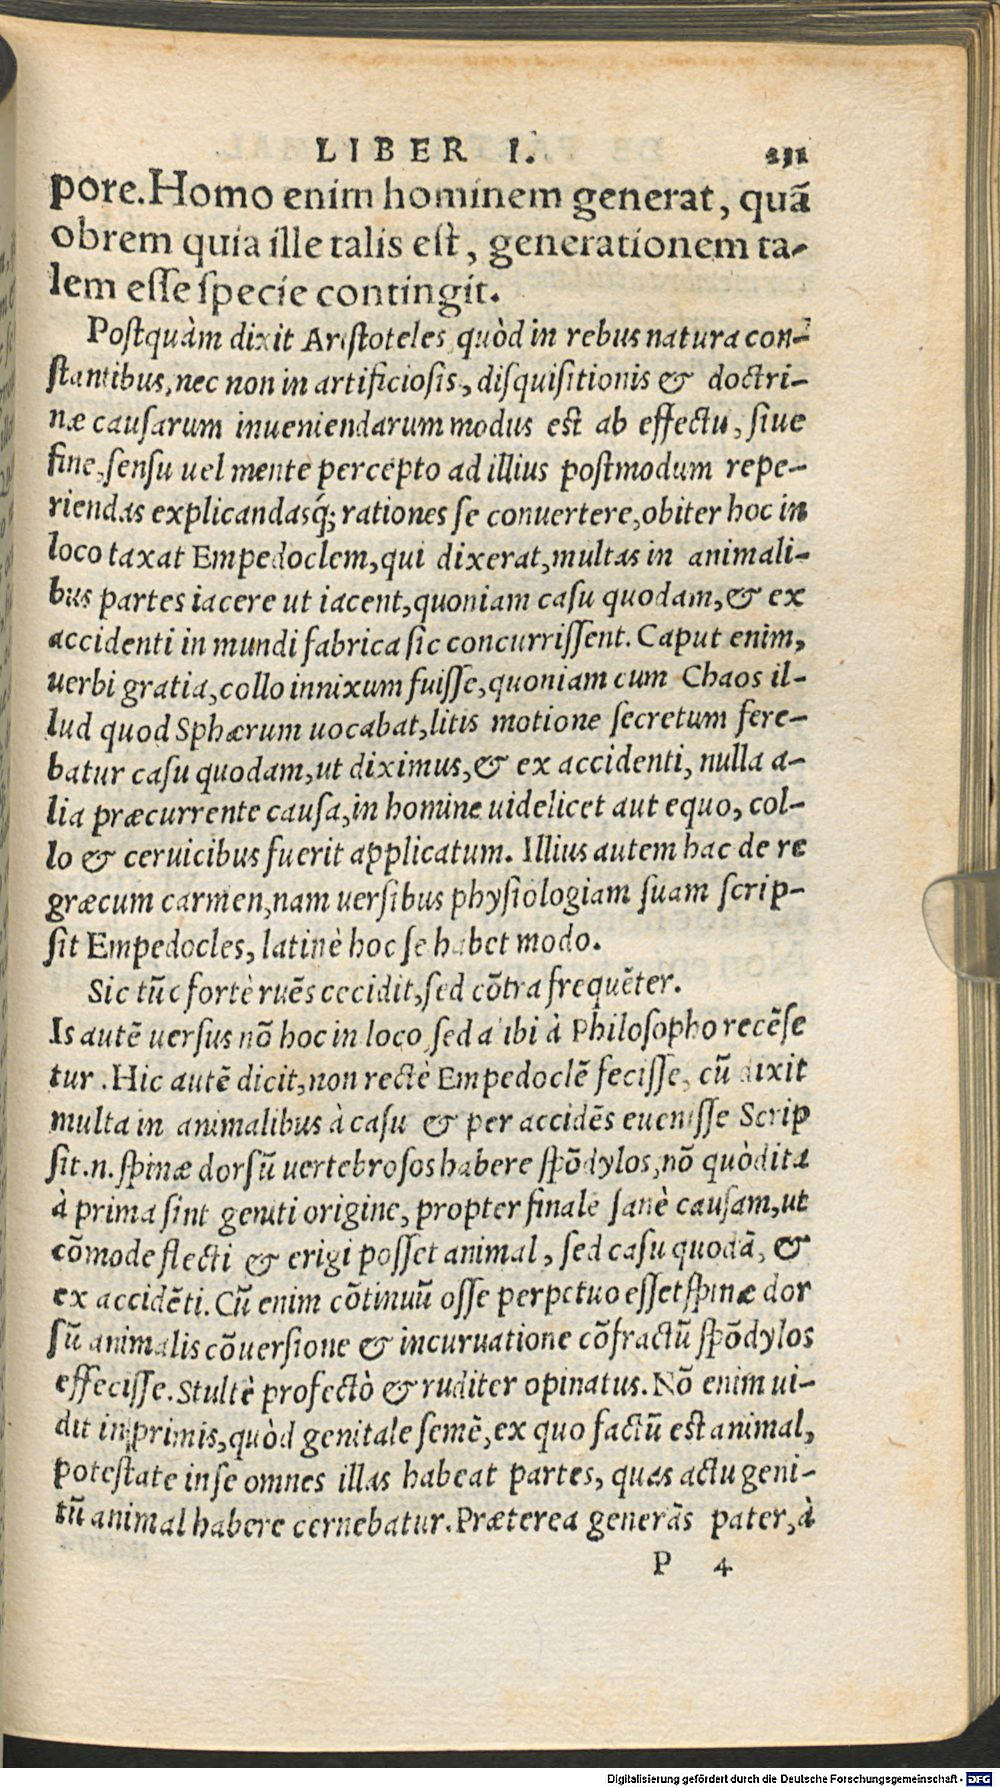 LIBER I. 231
pore. Homo enim hominem generat, quã
obrem quia ille talis est, generationem ta-
lem esse specie contingit.
Postquàm dixit Aristoteles quòd in rebus natura con-
stantibus, nec non in artificiosis, disquisitionis & doctri-
næ causarum inueniendarum modus est ab effectu, siue
fine, sensu uel mente percepto ad illius postmodum repe-
riendas explicandasq́; rationes se conuertere, obiter hoc in
loco taxat Empedoclem, qui dixerat, multas in animali-
bus partes iacere ut iacent, quoniam casu quodam, & ex
accidenti in mundi fabrica sic concurrissent. Caput enim,
uerbi gratia, collo innixum fuisse, quoniam cum Chaos il-
lud quod Sphærum uocabat, litis motione secretum fere-
batur casu quodam, ut diximus, & ex accidenti, nulla a-
lia præcurrente causa, in homine uidelicet aut equo, col-
lo & ceruicibus fuerit applicatum. Illius autem hac de re
græcum carmen, nam uersibus physiologiam suam scrip-
sit Empedocles, latinè hoc se habet modo.
Sic tũc fortè ruẽs cecidit, sed cõtra frequẽter.
Is autẽ uersus nõ hoc in loco sed a ibi à Philosopho recẽse
tur. Hic autẽ dicit, non rectè Empedoclẽ fecisse, cũ dixit
multa in animalibus à casu & per accidẽs euenisse Scrip
sit.n. spinæ dorsũ uertebrosos habere spõdylos, nõ quòd ita
à prima sint geniti origine, propter finalẽ sanè causam, ut
cõmode flecti & erigi posset animal, sed casu quodã, &
ex accidẽti. Cũ enim cõtinuũ osse perpetuo esset spinæ dor
sũ animalis cõuersione & incuruatione cõfractũ spõdylos
effecisse. Stultè profectò & ruditer opinatus. Nõ enim ui-
dit inprimis, quòd genitale semẽ, ex quo factũ est animal,
potestate in se omnes illas habeat partes, quas actu geni-
tũ animal habere cernebatur. Præterea generãs pater, à
P 4
Digitalisierung gefördert durch die Deutsche Forschungsgemeinschaft - DFG